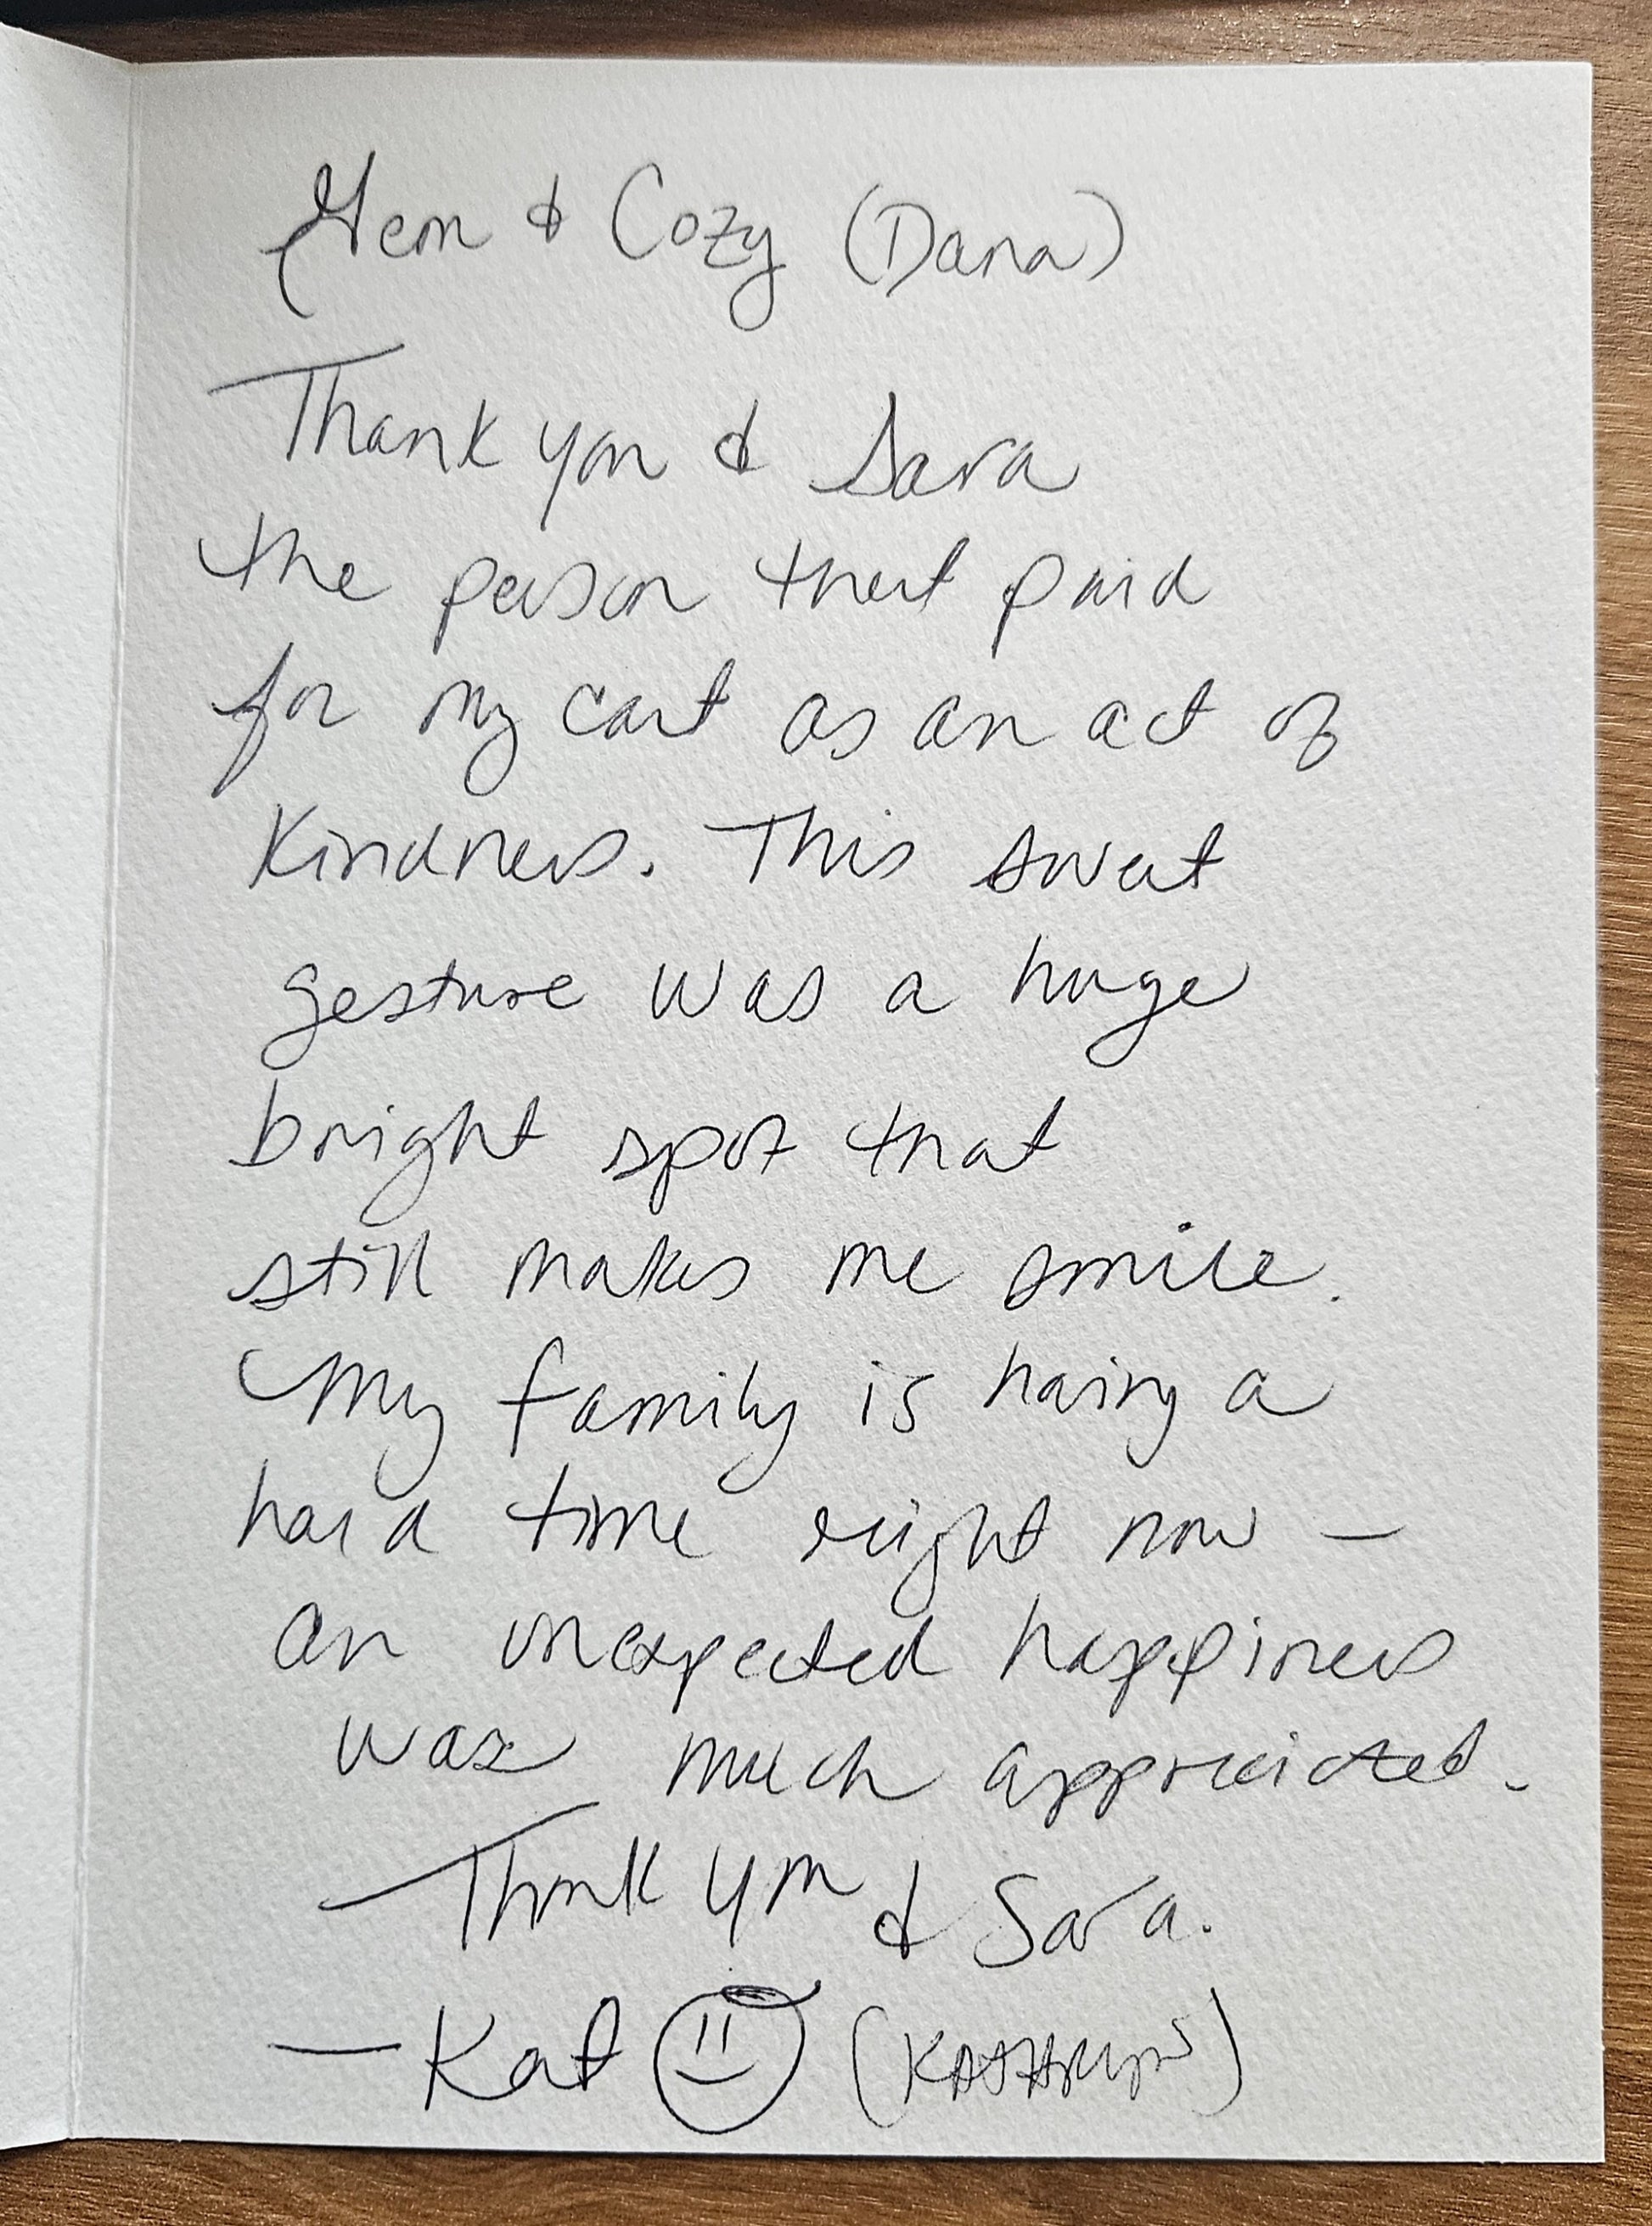 Gem & Cozy (Dana)
Thank you & Sara
the person that paid
for my cart as an act of
Kindness. This sweet
gesture was a huge
bright spot that
still makes me smile.
My family is having a
hard time right now —
an unexpected happiness
was much appreciated.
Thank you & Sara.
— Kat (KATHRYN)